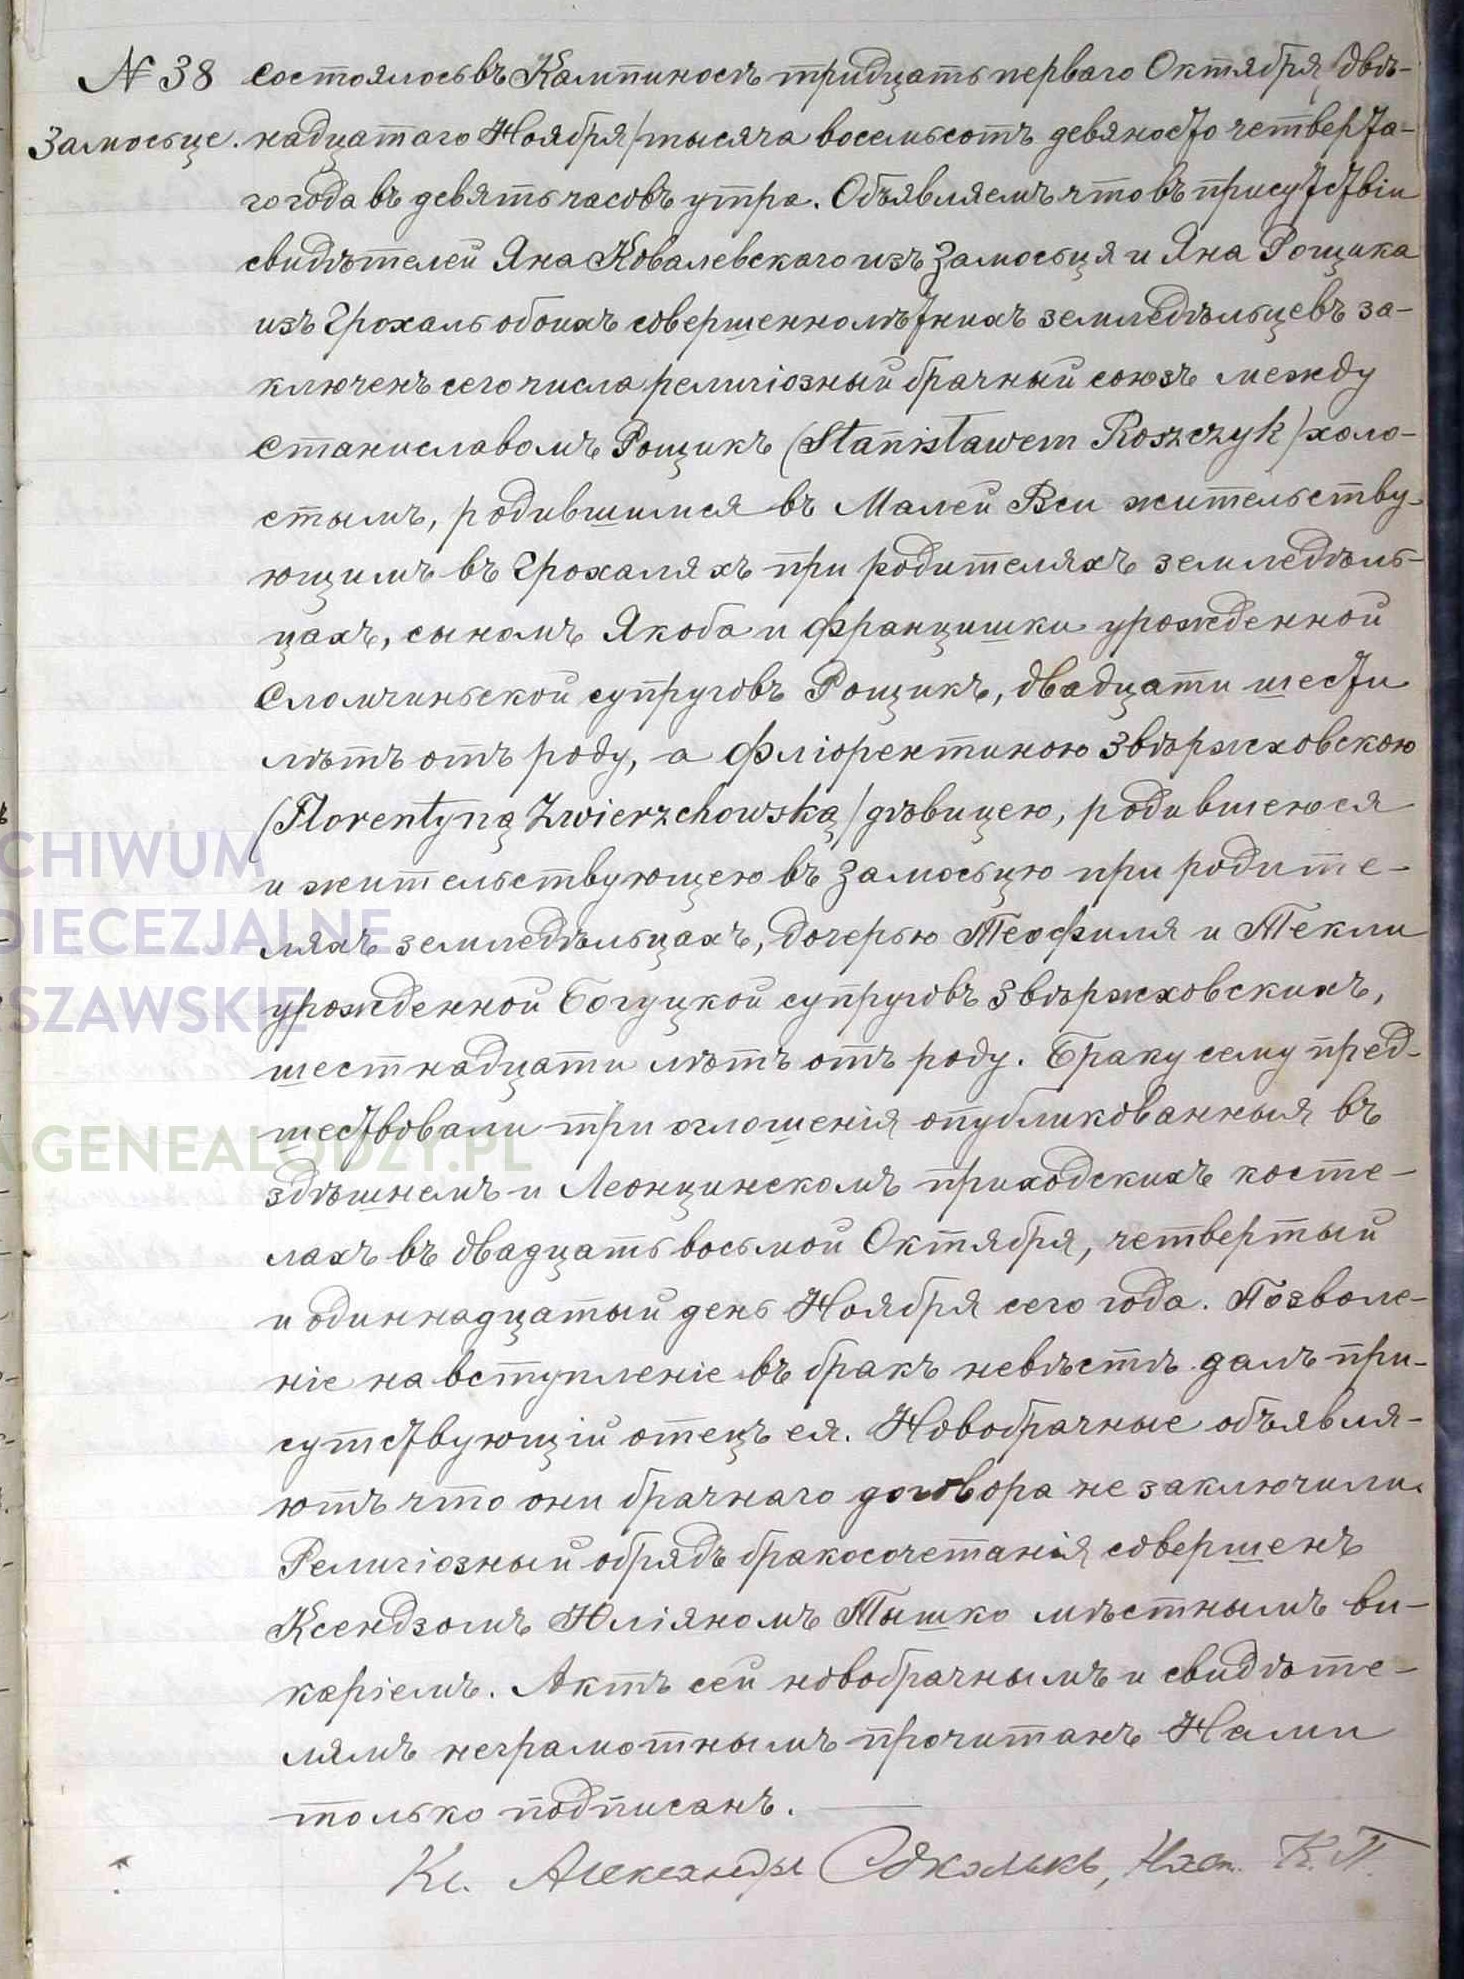 № 38 состоялось въ Кампиносѣ тридцать перваго Октября /двѣ-
Замосьце. надцатаго Ноября/ тысяча восемьсотъ девяносто четверта-
го года въ девять часовъ утра. Объявляемъ что въ присутствіи
свидѣтелей Яна Ковалевскаго изъ Замосьця и Яна Рощика
изъ Грохаль обоихъ совершеннолѣтнихъ земледѣльцевъ за-
ключенъ сего числа религіозный брачный союзъ между
Станиславомъ Рощикъ (Stanisławem Roszczyk) холо-
стымъ, родившимся въ Малей Вси жительству-
ющимъ въ Грохаляхъ при родителяхъ земледѣль-
цахъ, сыномъ Якоба и Францишки урожденной
Сломчиньской супруговъ Рощикъ, двадцати шести
лѣтъ отъ роду, а Фліорентиною Звѣржховскою
/Florentyną Zwierzchowską/ дѣвицею, родившеюся
и жительствующею въ Замосьцю при родите-
ляхъ земледѣльцахъ, дочерью Теофиля и Текли
урожденной Богуцкой супруговъ Звѣржховскихъ,
шестнадцати лѣтъ отъ роду. Браку сему пред-
шествовали три оглошенія опубликованныя въ
здѣшнемъ и Леонцинскомъ приходскихъ косте-
лахъ въ двадцать восьмой Октября, четвертый
и одиннадцатый день Ноября сего года. Позволе-
ніе на вступленіе въ бракъ невѣстѣ далъ при-
сутствующій отецъ ея. Новобрачные объявля-
ютъ что они брачнаго договора не заключили.
Религіозный обрядъ бракосочетанія совершенъ
Ксендзомъ Юліяномъ Тышко мѣстнымъ ви-
каріемъ. Актъ сей новобрачнымъ и свидѣте-
лямъ неграмотнымъ прочитанъ Нами
только подписанъ.
Кс. Александръ К. П.
CHIWUM
DIECEZJALNE
SZAWSKIE
A.GENEALODZY.PL